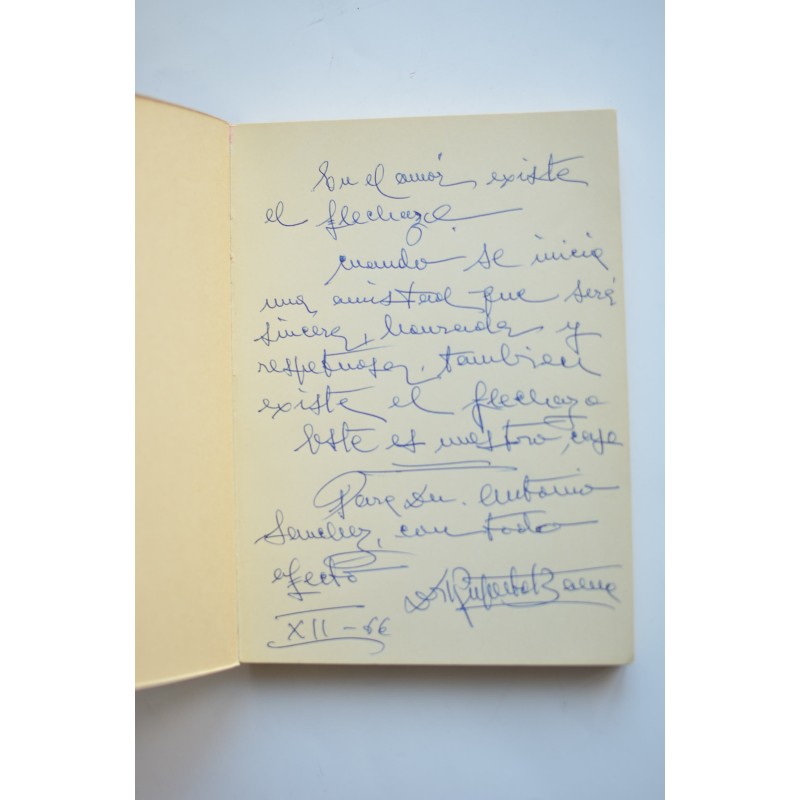 En el amor existe
el flechazo
cuando se inicia
una amistad que será
sincera, honrada y
respetuosa, tambien
existe el flechazo
Este es nuestro caso
Para Dn. Antonio
Sanchez, con todo
afecto
XII-66